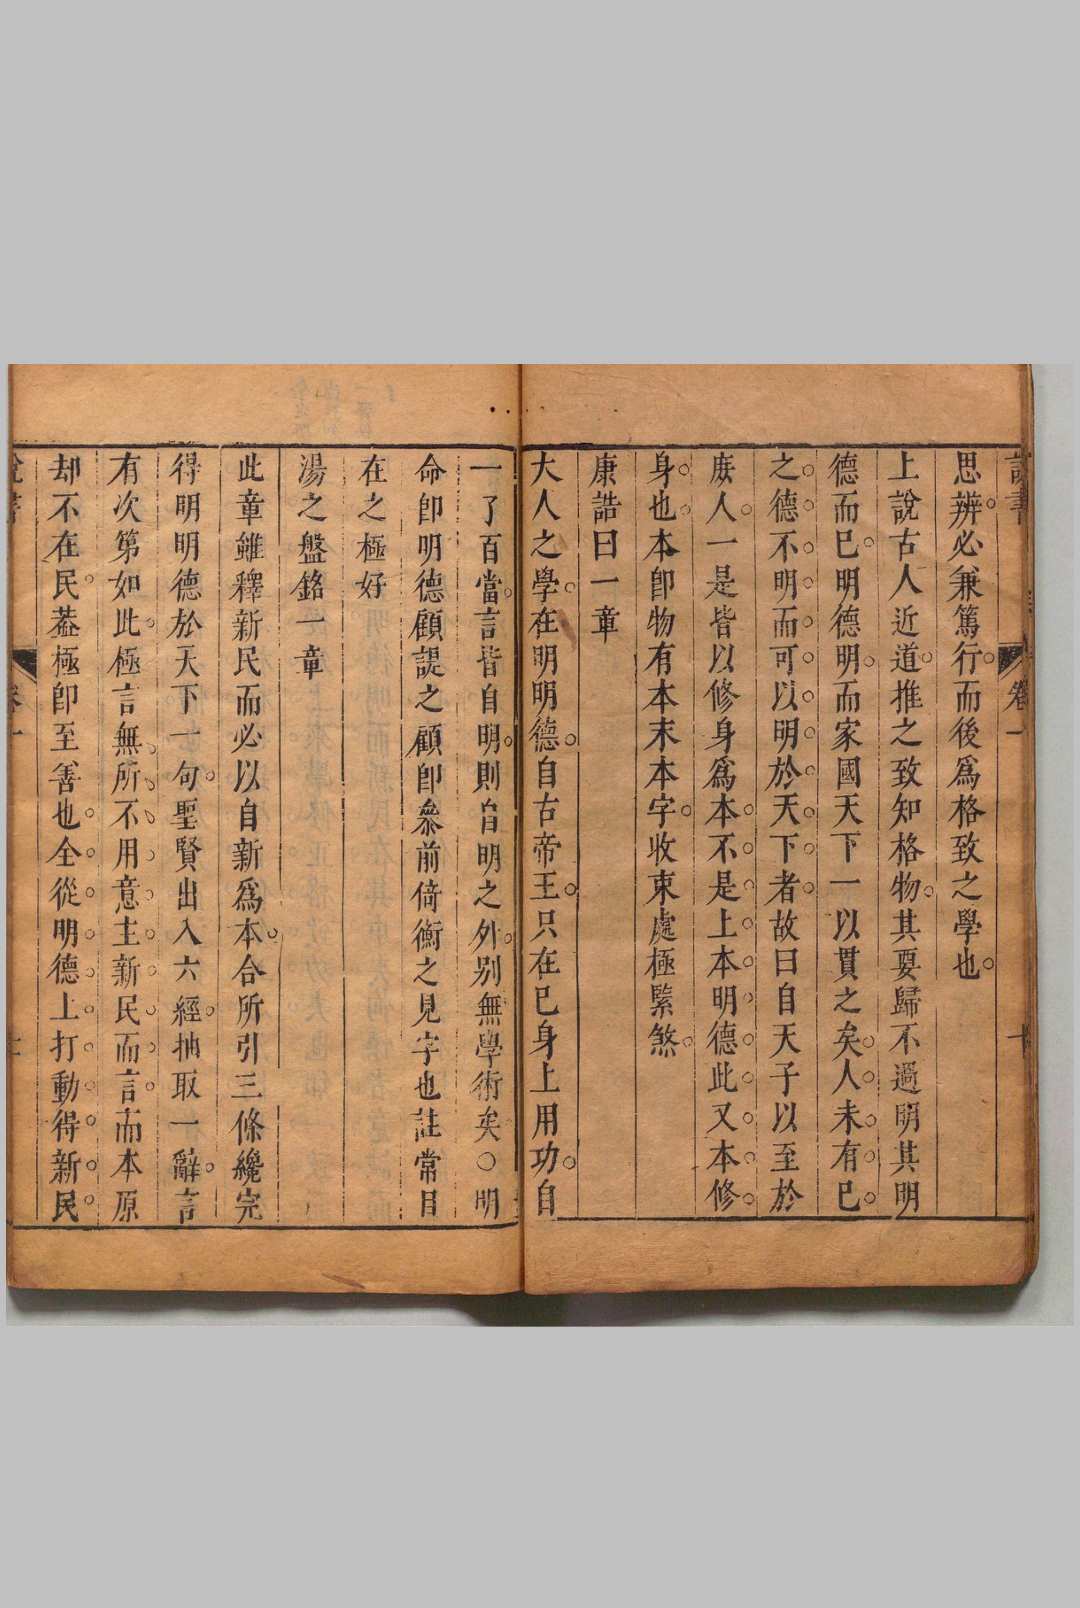 說書 卷一 十
思辨必兼篤行而後爲格致之學也
上說古人近道推之致知格物其要歸不過明其明
德而已明德明而家國天下一以貫之矣人未有已
之德不明而可以明於天下者故曰自天子以至於
庻人一是皆以修身爲本不是上本明德此又本修
身也本卽物有本末本字收束處極緊煞
康誥曰一章
大人之學在明明德自古帝王只在已身上用功自
一了百當言皆自明則自明之外別無學術矣○明
命卽明德顧諟之顧卽叅前倚衡之見字也註常目
在之極好
湯之盤銘一章
此章雖釋新民而必以自新爲本合所引三條纔完
得明明德於天下一句聖賢出入六經抽取一辭言
有次第如此極言無所不用意主新民而言而本原
却不在民葢極卽至善也全從明德上打動得新民
說書 卷一